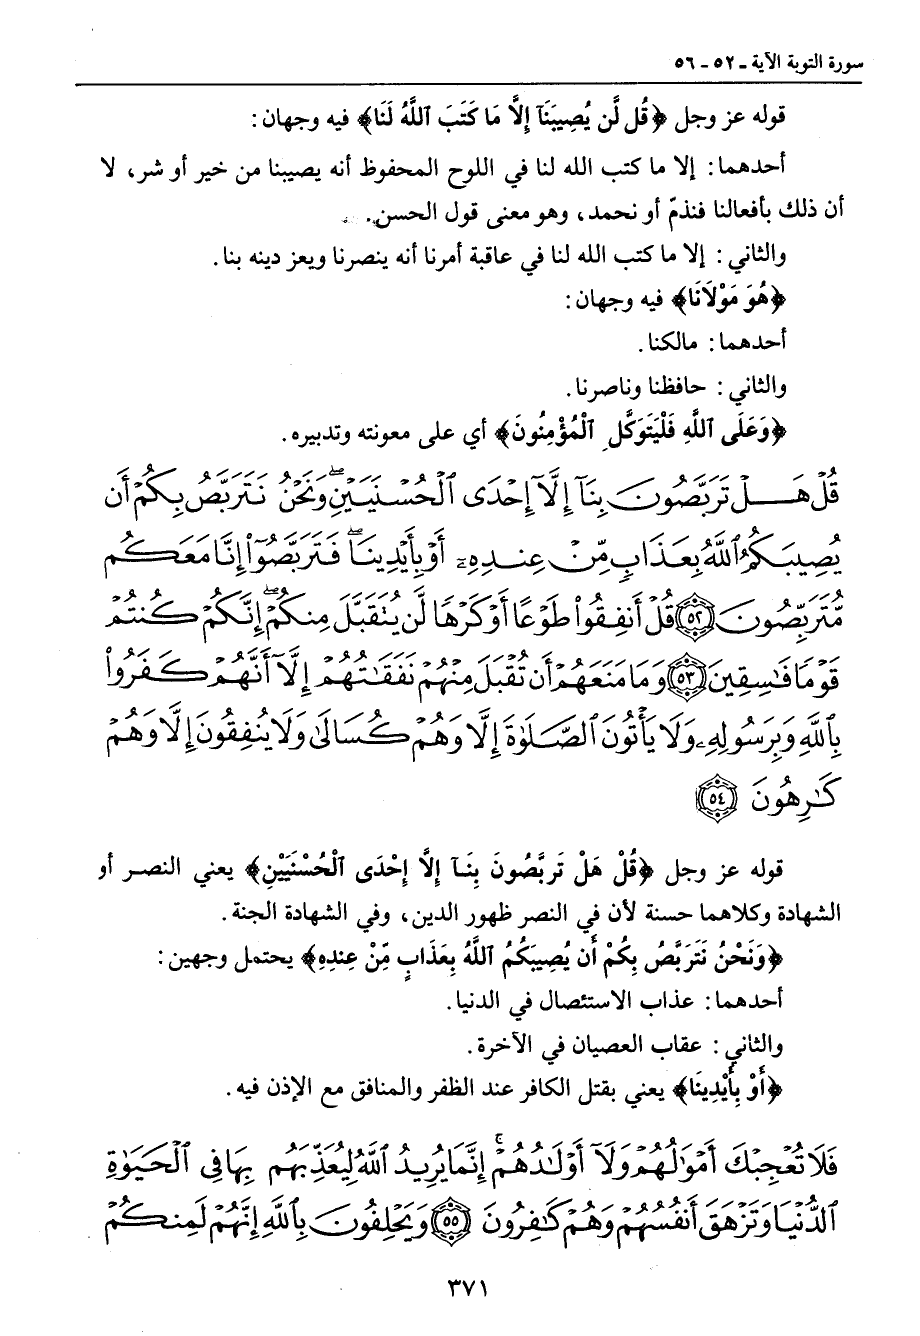 سورة التوبة الآية - ٥٢ - ٥٦
قوله عز وجل ﴿قُل لَّن يُصِيبَنَآ إِلَّا مَا كَتَبَ ٱللَّهُ لَنَا﴾ فيه وجهان:
أحدهما: إلا ما كتب الله لنا في اللوح المحفوظ أنه يصيبنا من خير أو شر، لا
أن ذلك بأفعالنا فنذمّ أو نحمد، وهو معنى قول الحسن.
والثاني: إلا ما كتب الله لنا في عاقبة أمرنا أنه ينصرنا ويعز دينه بنا.
﴿هُوَ مَوْلَانَا﴾ فيه وجهان:
أحدهما: مالكنا.
والثاني: حافظنا وناصرنا.
﴿وَعَلَى ٱللَّهِ فَلْيَتَوَكَّلِ ٱلْمُؤْمِنُونَ﴾ أي على معونته وتدبيره.
قُلْ هَلْ تَرَبَّصُونَ بِنَآ إِلَّآ إِحْدَى ٱلْحُسْنَيَيْنِۖ وَنَحْنُ نَتَرَبَّصُ بِكُمْ أَن
يُصِيبَكُمُ ٱللَّهُ بِعَذَابٍ مِّنْ عِندِهِۦٓ أَوْ بِأَيْدِينَاۖ فَتَرَبَّصُوٓا۟ إِنَّا مَعَكُم
مُّتَرَبِّصُونَ ٥٢ قُلْ أَنفِقُوا۟ طَوْعًا أَوْ كَرْهًا لَّن يُتَقَبَّلَ مِنكُمْۖ إِنَّكُمْ كُنتُمْ
قَوْمًا فَٰسِقِينَ ٥٣ وَمَا مَنَعَهُمْ أَن تُقْبَلَ مِنْهُمْ نَفَقَٰتُهُمْ إِلَّآ أَنَّهُمْ كَفَرُوا۟
بِٱللَّهِ وَبِرَسُولِهِۦ وَلَا يَأْتُونَ ٱلصَّلَوٰةَ إِلَّا وَهُمْ كُسَالَىٰ وَلَا يُنفِقُونَ إِلَّا وَهُمْ
كَٰرِهُونَ ٥٤
قوله عز وجل ﴿قُلْ هَلْ تَرَبَّصُونَ بِنَآ إِلَّا إِحْدَى ٱلْحُسْنَيَيْنِ﴾ يعني النصر أو
الشهادة وكلاهما حسنة لأن في النصر ظهور الدين، وفي الشهادة الجنة.
﴿وَنَحْنُ نَتَرَبَّصُ بِكُمْ أَن يُصِيبَكُمُ ٱللَّهُ بِعَذَابٍ مِّنْ عِندِهِ﴾ يحتمل وجهين:
أحدهما: عذاب الاستئصال في الدنيا.
والثاني: عقاب العصيان في الآخرة.
﴿أَوْ بِأَيْدِينَا﴾ يعني بقتل الكافر عند الظفر والمنافق مع الإذن فيه.
فَلَا تُعْجِبْكَ أَمْوَٰلُهُمْ وَلَآ أَوْلَٰدُهُمْۚ إِنَّمَا يُرِيدُ ٱللَّهُ لِيُعَذِّبَهُم بِهَا فِى ٱلْحَيَوٰةِ
ٱلدُّنْيَا وَتَزْهَقَ أَنفُسُهُمْ وَهُمْ كَٰفِرُونَ ٥٥ وَيَحْلِفُونَ بِٱللَّهِ إِنَّهُمْ لَمِنكُمْ
٣٧١